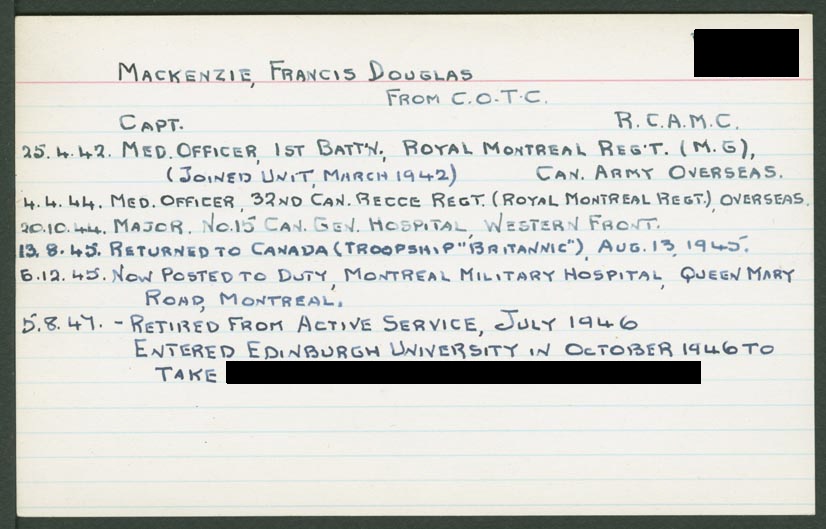 MACKENZIE, FRANCIS DOUGLAS
FROM C.O.T.C.
CAPT. R.C.A.M.C.
25.4.42. MED. OFFICER, 1ST BATT'N., ROYAL MONTREAL REG'T. (M.G),
(JOINED UNIT, MARCH 1942) CAN. ARMY OVERSEAS.
4.4.44. MED. OFFICER, 32ND CAN. RECCE REGT. (ROYAL MONTREAL REGT.), OVERSEAS.
20.10.44. MAJOR, NO.15 CAN. GEN. HOSPITAL, WESTERN FRONT.
13.8.45. RETURNED TO CANADA (TROOPSHIP "BRITANNIC"), AUG. 13, 1945.
6.12.45. NOW POSTED TO DUTY, MONTREAL MILITARY HOSPITAL, QUEEN MARY
ROAD, MONTREAL.
5.8.47. - RETIRED FROM ACTIVE SERVICE, JULY 1946
ENTERED EDINBURGH UNIVERSITY IN OCTOBER 1946 TO
TAKE